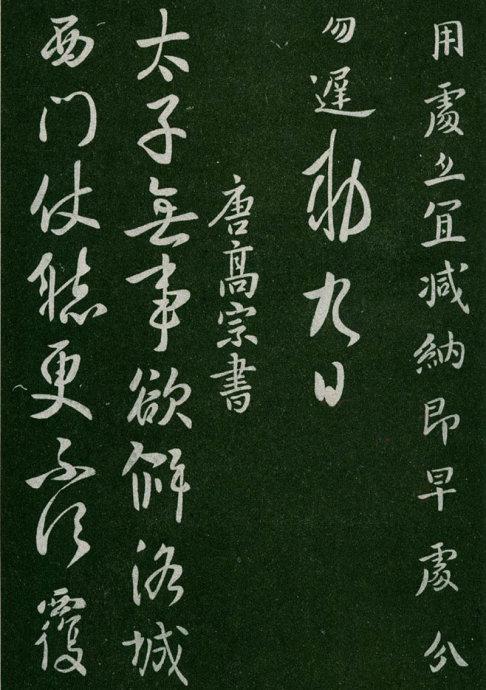 用處亦宜減納即早處分
勿遲敕九日
唐高宗書
太子無事欲解洛城
西門仗聽更不須覆